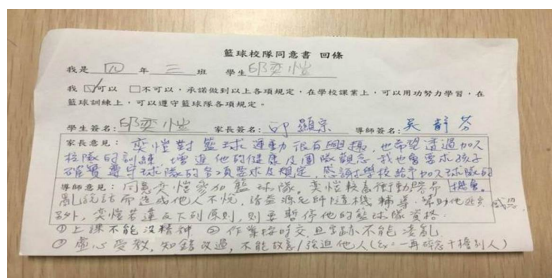 籃球校隊同意書 回條
我是 四 年 三 班 學生 邱奕愷
我 ☑可以 □不可以，承諾做到以上各項規定，在學校課業上，可以用功努力學習，在
籃球訓練上，可以遵守籃球隊各項規定。
學生簽名：邱奕愷 家長簽名：邱顯宗 導師簽名：吳靜芬
家長意見：奕愷對籃球運動很有興趣，也希望透過加入
校隊的訓練，增進他的健康及團隊觀念，我也會要求孩子
確實遵守球隊的各項要求及規定，感謝學校給予加入球隊的
機會。
導師意見：同意奕愷參加籃球隊，奕愷較為衝動
亂說話而造成他人不悅，請教練老師隨機輔導，幫助他
，奕愷若違反下列原則，則要暫停他的籃球隊資格。感恩
①上課不能沒精神 ②作業按時交且字跡不能凌亂
③虛心受教，知錯改過，不能故意/強迫他人